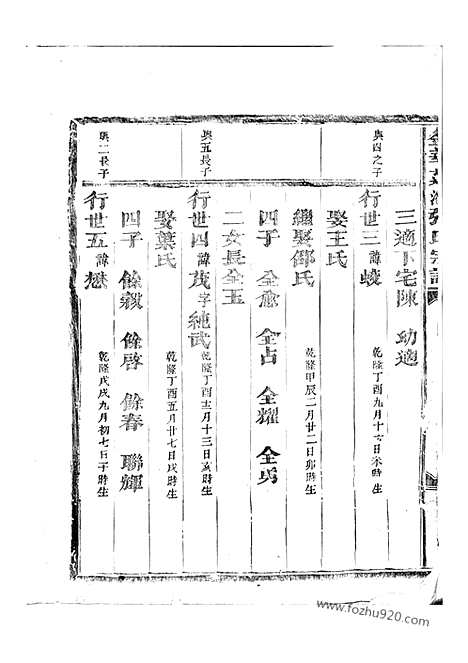 三適下宅陳 幼適
與四之子
行世三諱峻 乾隆丁酉九月十 日未時生
娶王氏
繼娶邵氏 乾隆甲辰二月廿二日卯時生
四子 全愈 全占 全耀 全勇
二女長全玉
與五長子
行世四諱茂字純武 乾隆丁酉 月十三日亥時生
娶葉氏 乾隆丁酉五月廿七日戌時生
四子 餘毅 餘啓 餘春 聯輝
與二長子
行世五諱懋 乾隆戊戌九月初七日子時生
www.fozhu920.com